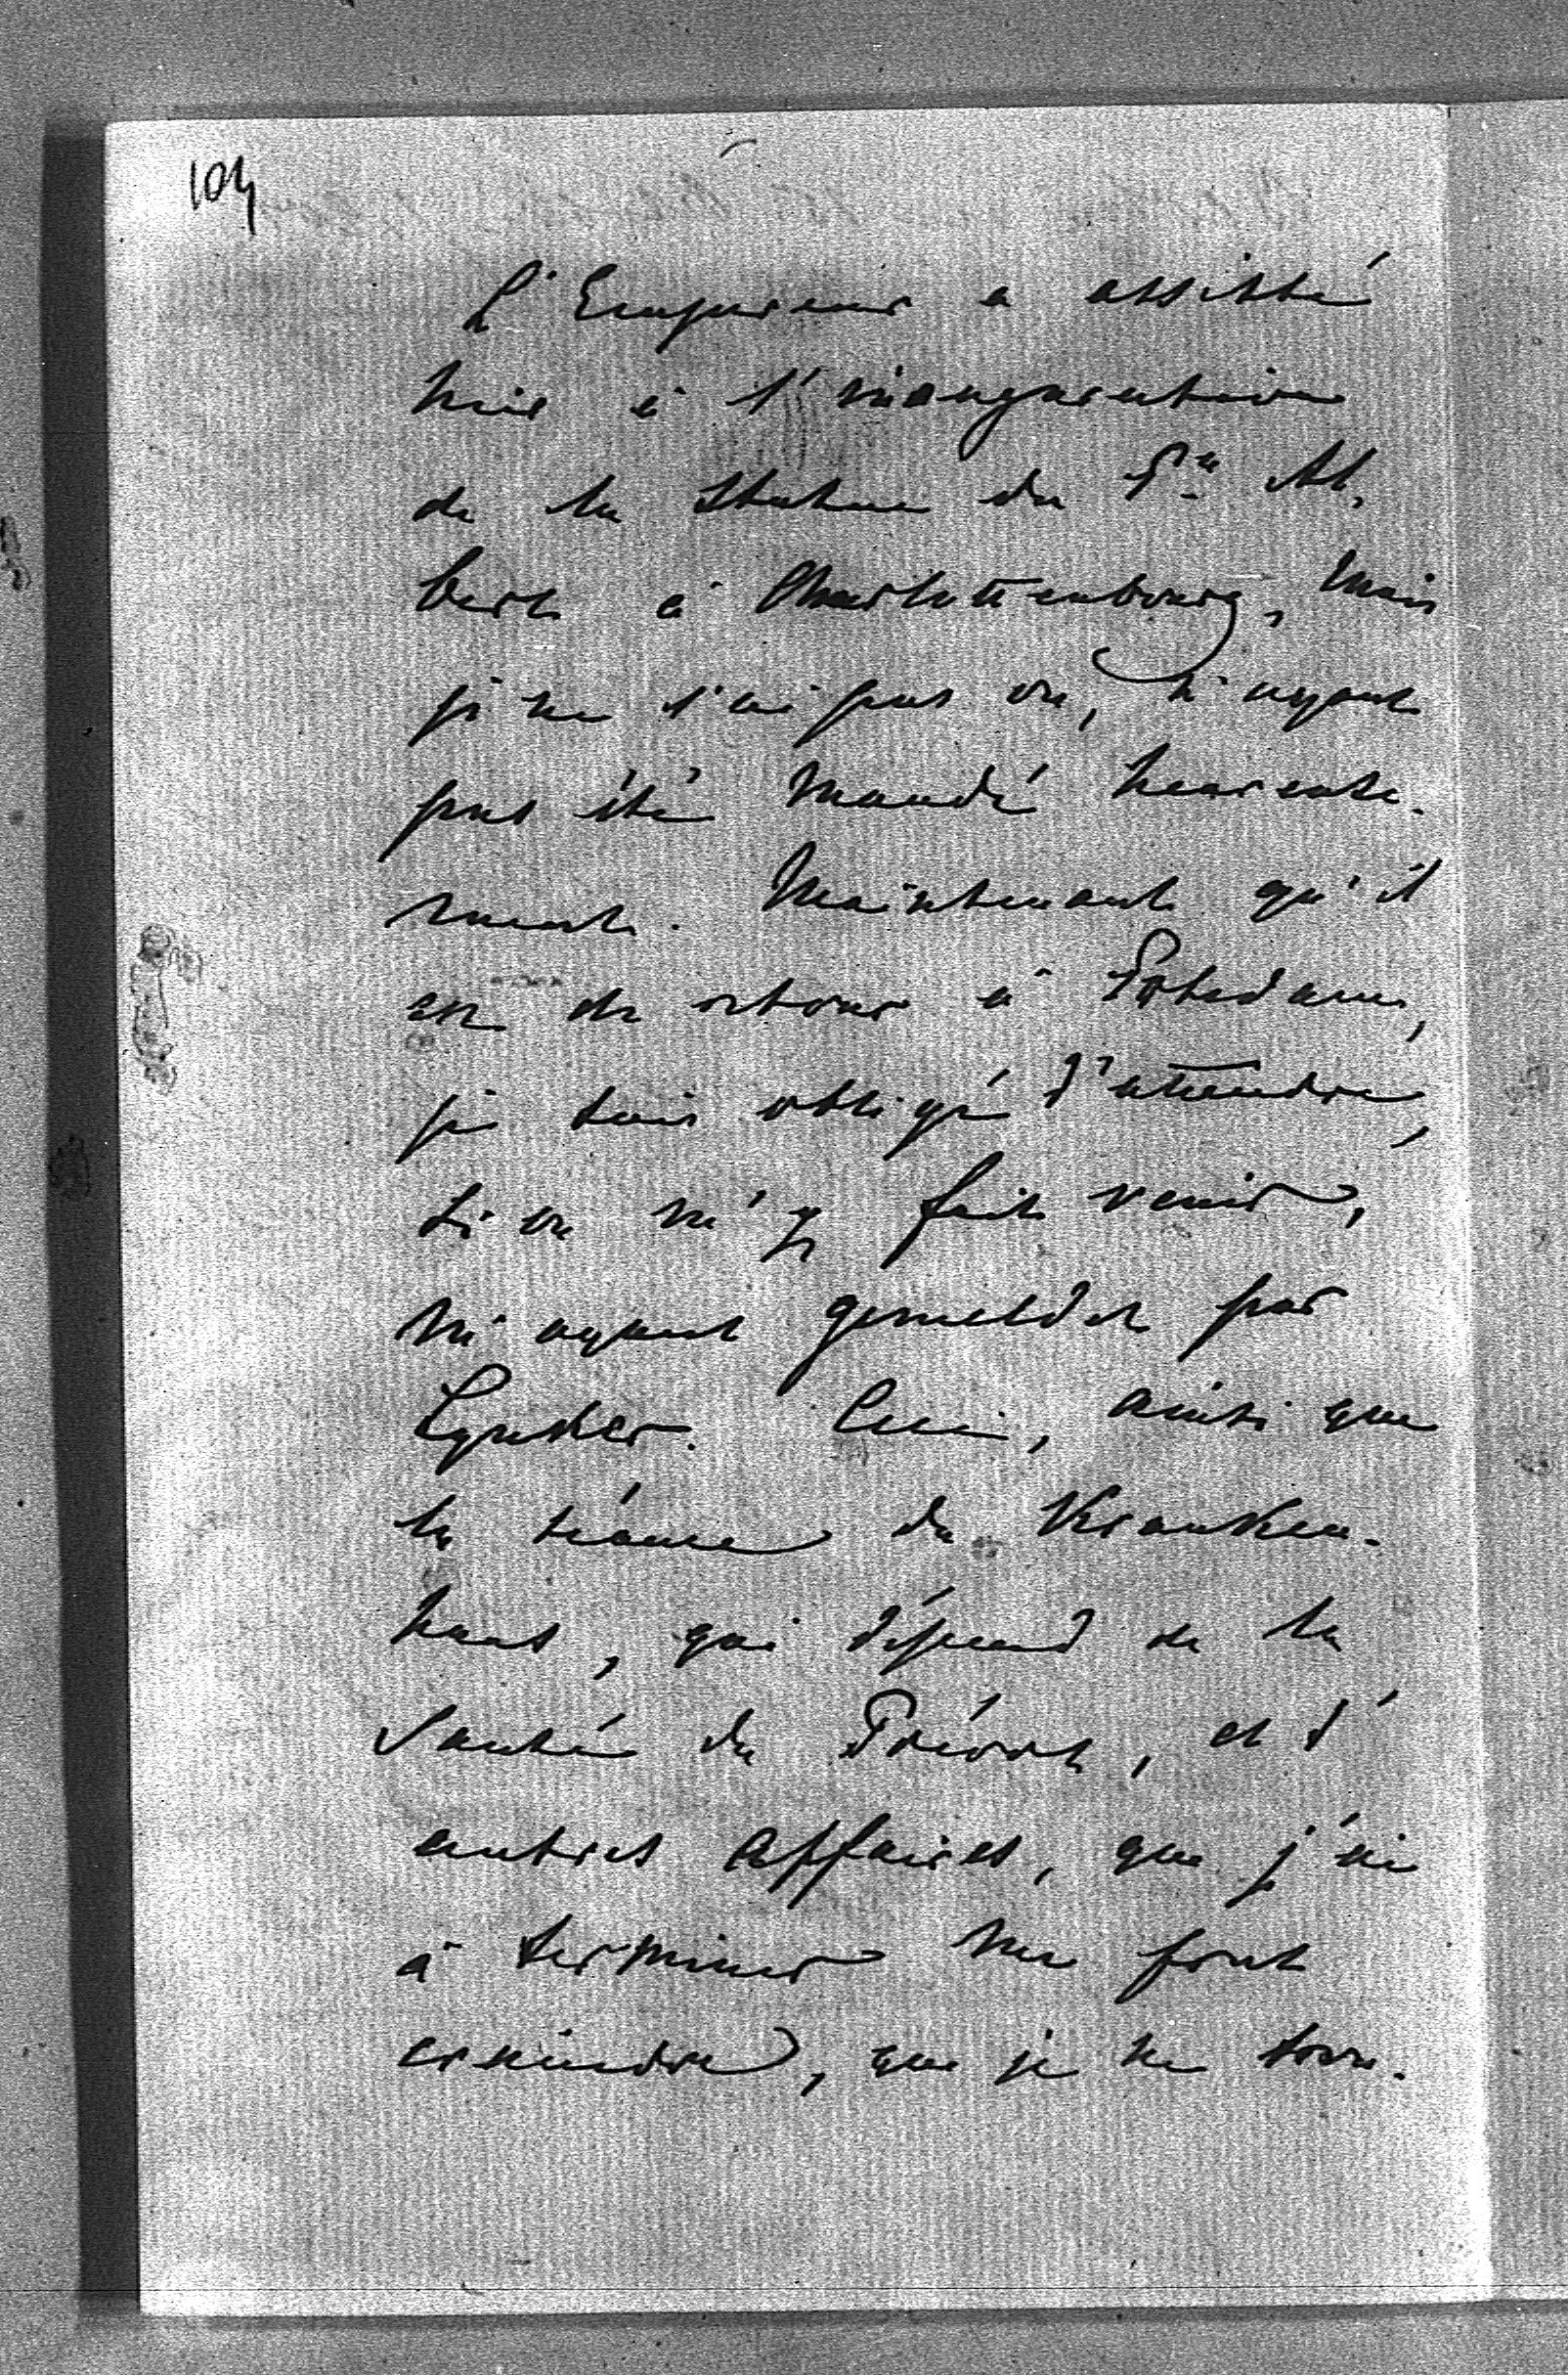 104
L'Empereur a assisté
hier à l'inauguration
de la statue du P.ce Al-
bert à Charlottenbourg, mais
je ne l'ai pas vu, n'ayant
pas été mandé heureuse-
ment. Maintenant qu'il
est de retour à Potsdam,
je suis obligé d'attendre,
si on m'y fait venir,
m'ayant gemeldet par
Lyncker. Ceci, ainsi que
la séance du Kranken-
haus, qui dépend de la
santé du Prévost, et d'
autres affaires, que j'ai
à terminer me font
craindre, que je ne